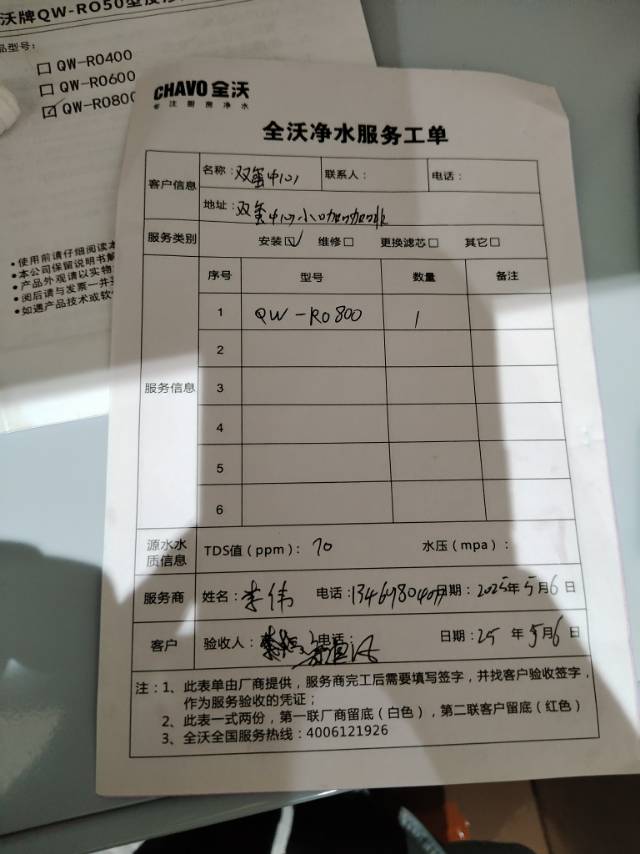 沃牌QW-RO50型反渗
品型号：
QW-RO400
QW-RO600
☑ QW-RO800
• 使用前请仔细阅读本
• 本公司保留说明书解
• 产品外观请以实物
• 阅后请与发票一并
• 如遇产品技术或软
CHAVO 全沃
专注厨房净水
全沃净水服务工单
客户信息 名称： 联系人： 电话：
地址：
服务类别 安装☑ 维修□ 更换滤芯□ 其它□
服务信息 序号 型号 数量 备注
1 QW-RO800 1
2
3
4
5
6
源水水质信息 TDS值（ppm）：70 水压（mpa）：
服务商 姓名：李伟 电话： 日期：2025年5月6日
客户 验收人： 电话： 日期：25年5月6日
注：1、此表单由厂商提供，服务商完工后需要填写签字，并找客户验收签字，
作为服务验收的凭证；
2、此表一式两份，第一联厂商留底（白色），第二联客户留底（红色）
3、全沃全国服务热线：4006121926